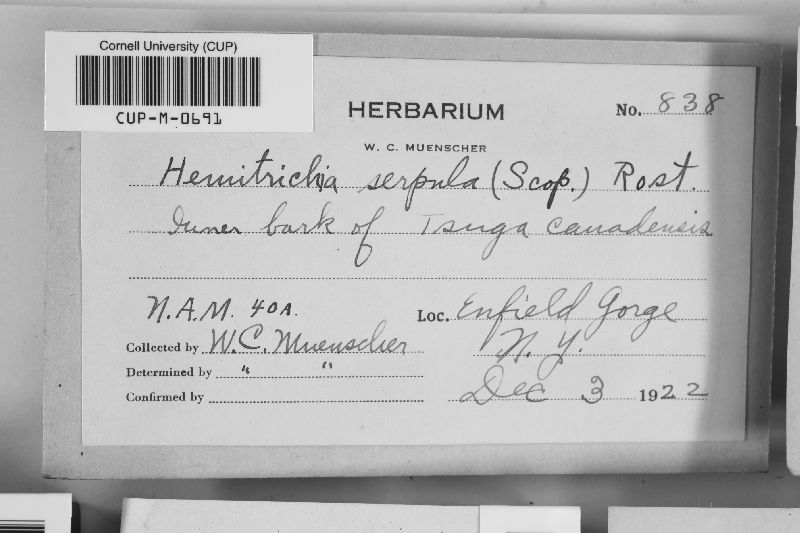 Cornell University (CUP)
CUP-M-0691
HERBARIUM
No. 838
W. C. MUENSCHER
Hemitrichia serpula (Scop.) Rost.
Inner bark of Tsuga canadensis
N.A.M. 40A.
Loc. Enfield Gorge
Collected by W.C. Muenscher
N. Y.
Determined by " "
Confirmed by
Dec 3 1922